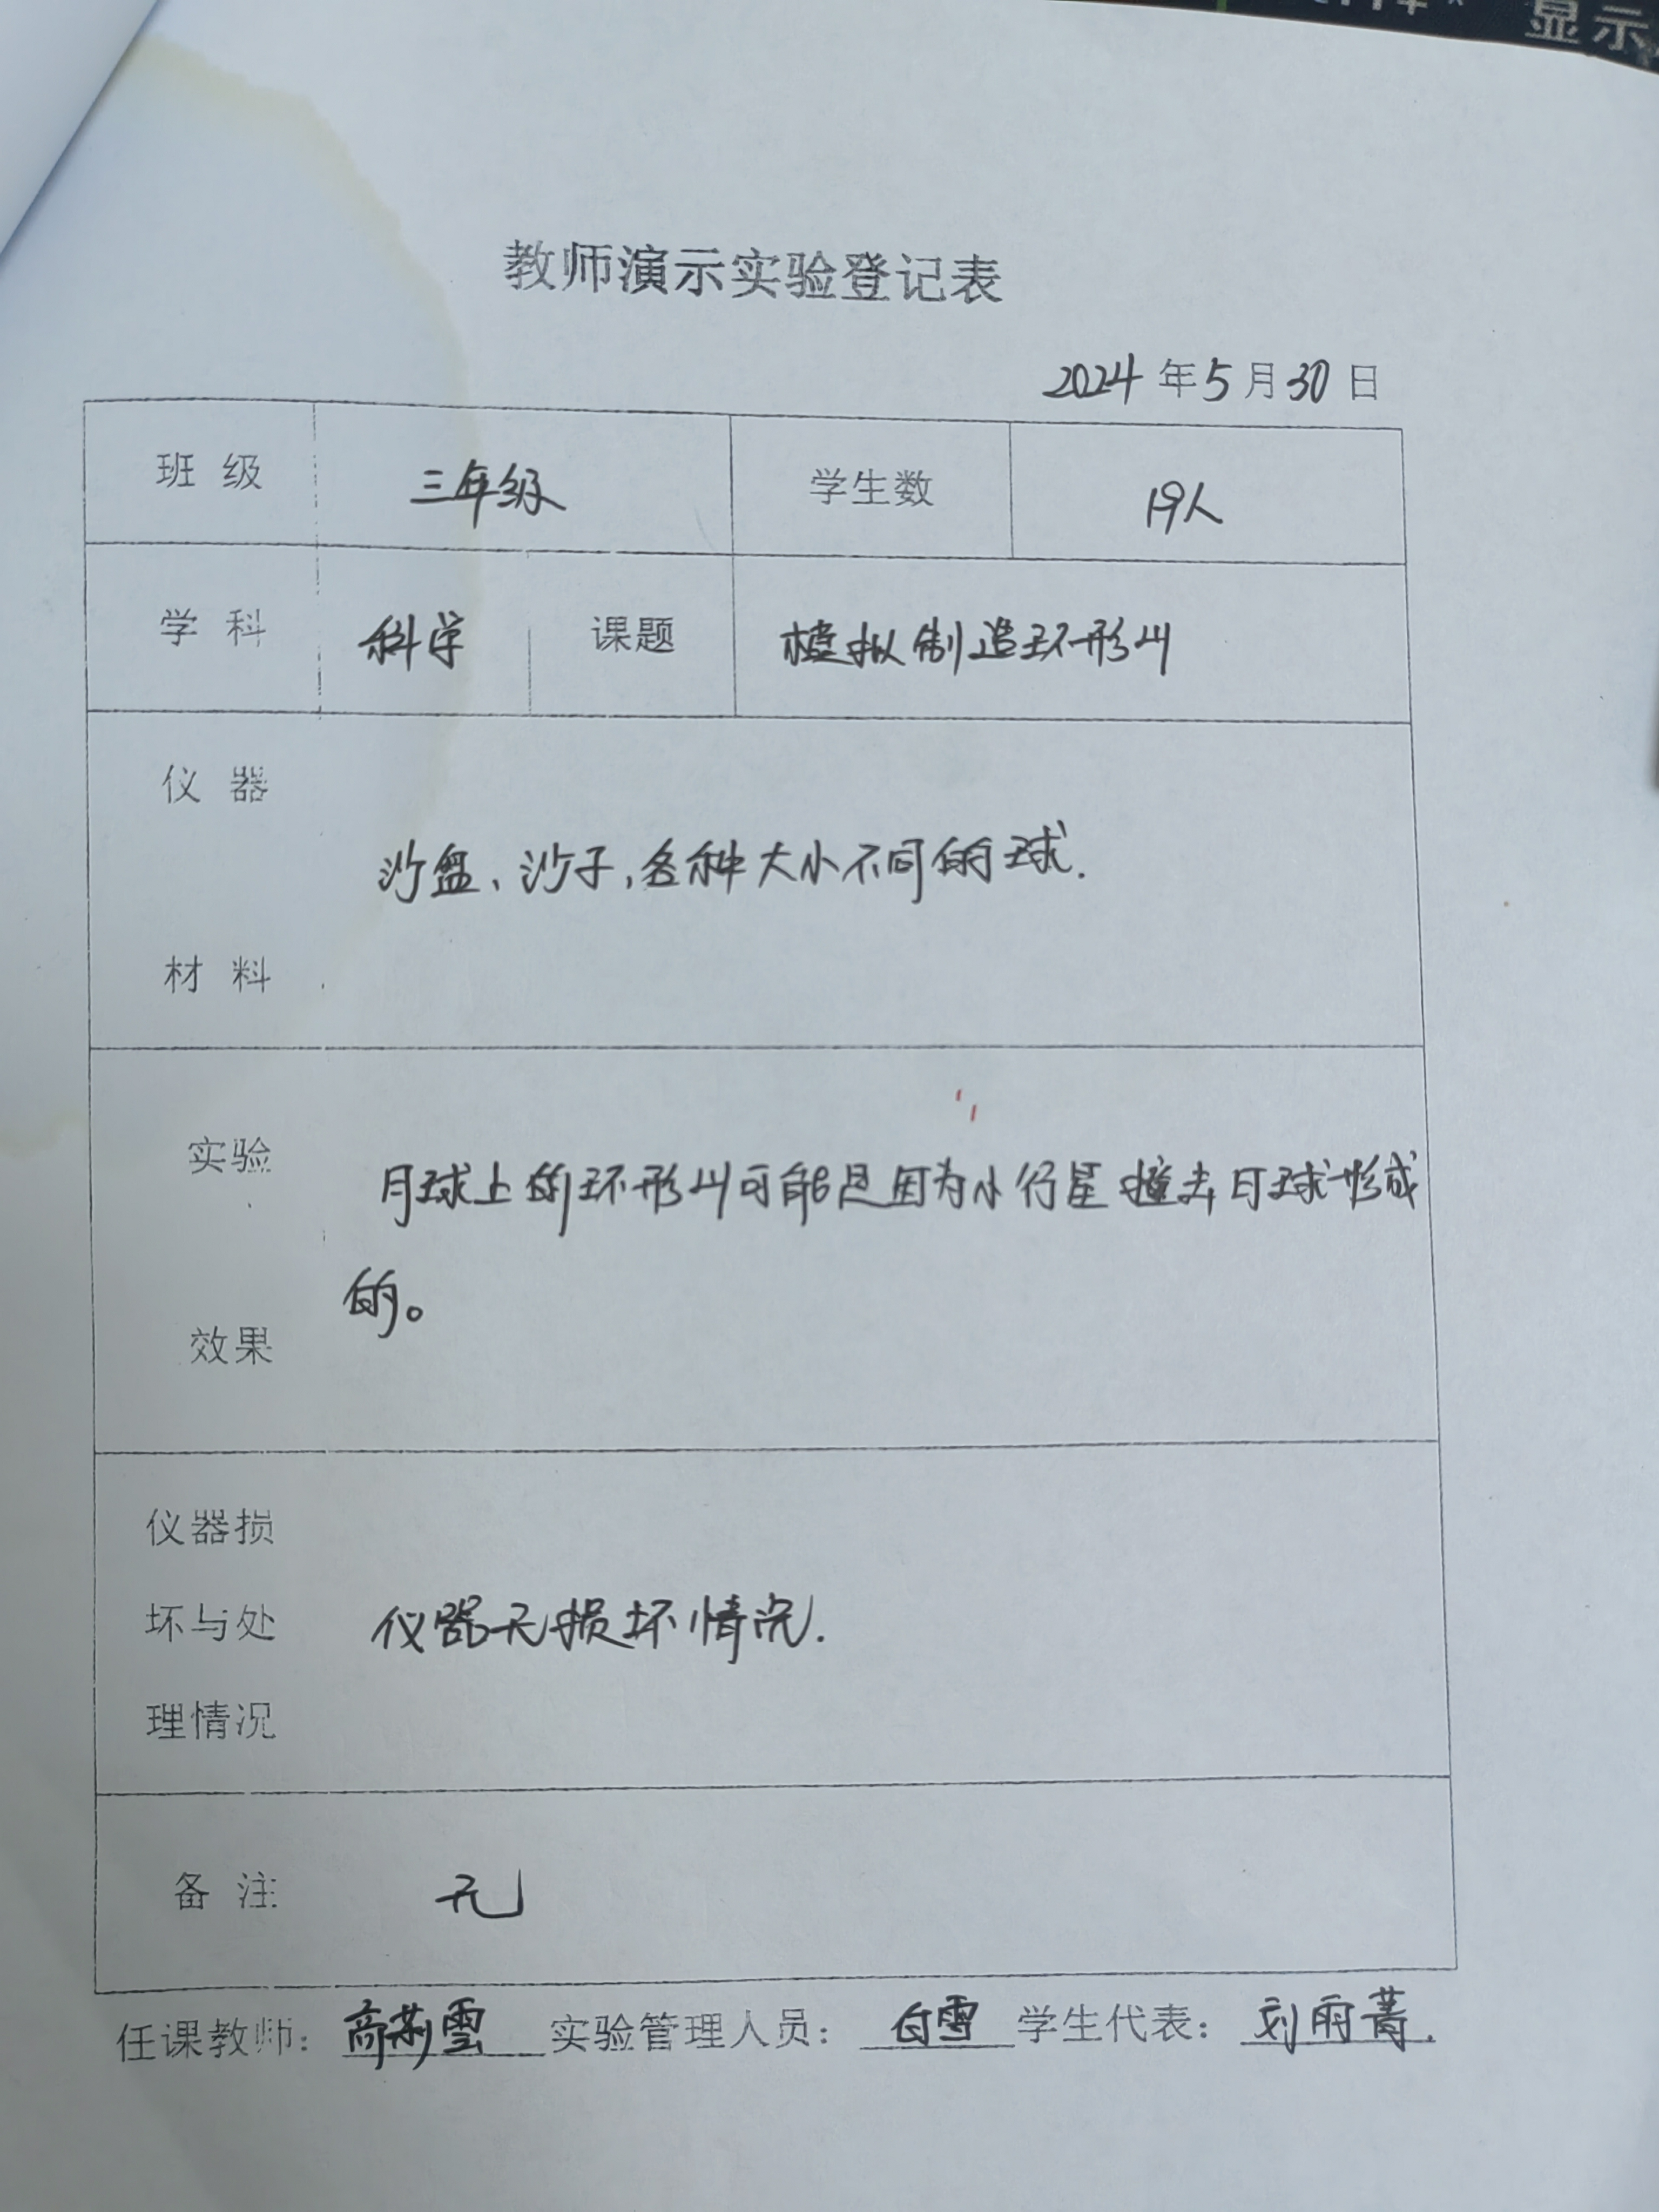 显示
教师演示实验登记表
2024年5月30日
班 级 三年级 学生数 19人
学 科 科学 课题 模拟制造环形山
仪 器
沙盘、沙子,各种大小不同的球.
材 料
实验
月球上的环形山可能是因为小行星撞击月球形成
的。
效果
仪器损
坏与处 仪器无损坏情况.
理情况
备 注 无
任课教师: 实验管理人员: 白雪 学生代表: 刘雨菁.